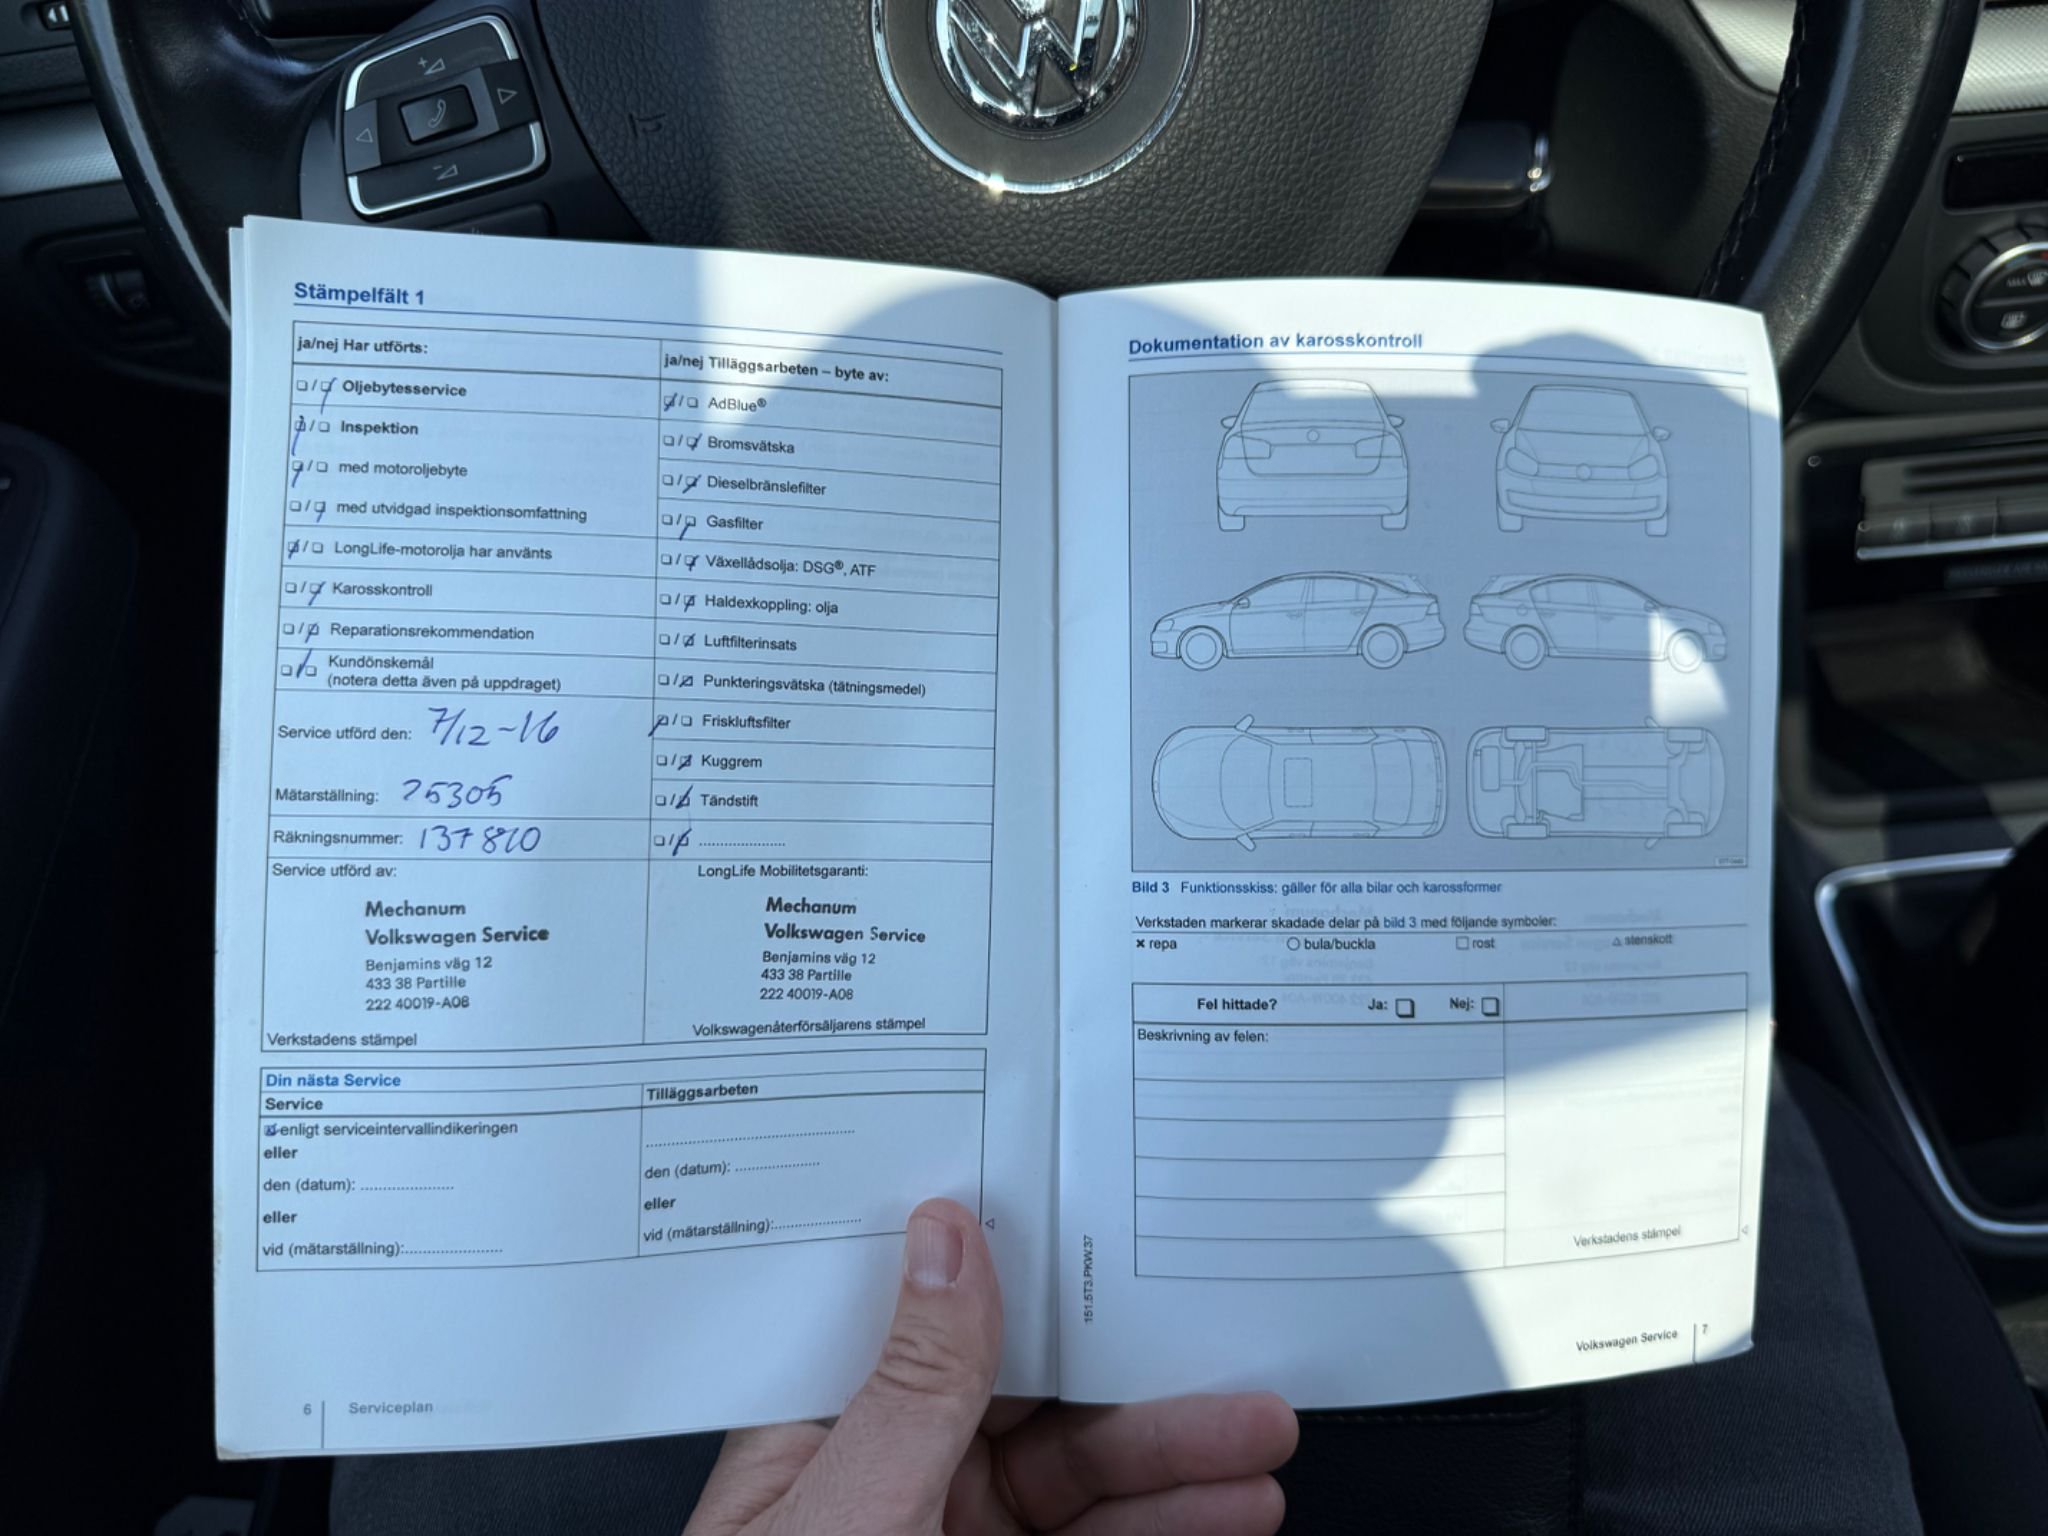 Stämpelfält 1
ja/nej Har utförts:
Oljebytesservice
Inspektion
med motoroljebyte
med utvidgad inspektionsomfattning
LongLife-motorolja har använts
Karosskontroll
Reparationsrekommendation
Kundönskemål
(notera detta även på uppdraget)
Service utförd den: 7/12-16
Mätarställning: 25305
Räkningsnummer: 137810
Service utförd av:
Mechanum
Volkswagen Service
Benjamins väg 12
433 38 Partille
222 40019-A08
Verkstadens stämpel
ja/nej Tilläggsarbeten – byte av:
AdBlue®
Bromsvätska
Dieselbränslefilter
Gasfilter
Växellådsolja: DSG®, ATF
Haldexkoppling: olja
Luftfilterinsats
Punkteringsvätska (tätningsmedel)
Friskluftsfilter
Kuggrem
Tändstift
LongLife Mobilitetsgaranti:
Mechanum
Volkswagen Service
Benjamins väg 12
433 38 Partille
222 40019-A08
Volkswagenåterförsäljarens stämpel
Din nästa Service
Service
enligt serviceintervallindikeringen
eller
den (datum): .....................
eller
vid (mätarställning):.....................
Tilläggsarbeten
den (datum): ...................
eller
vid (mätarställning):...................
6 Serviceplan
Dokumentation av karosskontroll
Bild 3 Funktionsskiss: gäller för alla bilar och karossformer
Verkstaden markerar skadade delar på bild 3 med följande symboler:
× repa ○ bula/buckla □ rost △ stenskott
Fel hittade? Ja: Nej:
Beskrivning av felen:
Verkstadens stämpel
151.5T3.PKW.37
Volkswagen Service 7